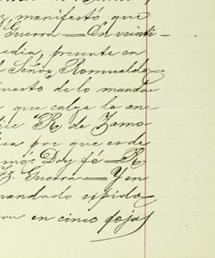 y manifestó que
Guerra — En veinti-
edia, presente en
l Señor Romualdo
ento de lo manda
que calza la an-
R. de Zamo
por que es de
mó: Doy fé — R.
Guerra — Y en
mandado espido
en cinco fojas